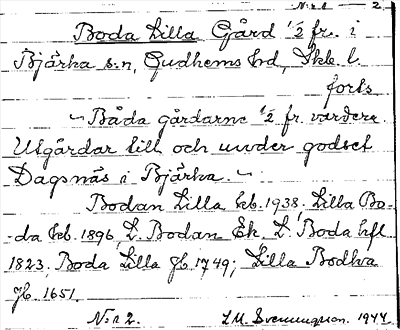 N:r 1 — 2.
Boda Lilla Gård 1/2 fr. i
Bjärka s:n, Gudhems hd, Skb. l.
forts.
~ Båda gårdarne 1/2 fr. vardera
Utgårdar till och under godset
Dagsnäs i Bjärka. ~
Bodan Lilla kb. 1938, Lilla Bo-
-da kb. 1896, L. Bodan Ek. L. Boda hfl
1823. Boda Lilla Jb. 1749; Lilla Bodha
Jb. 1651.
N:r 2. L.M. Svenungsson. 1944.